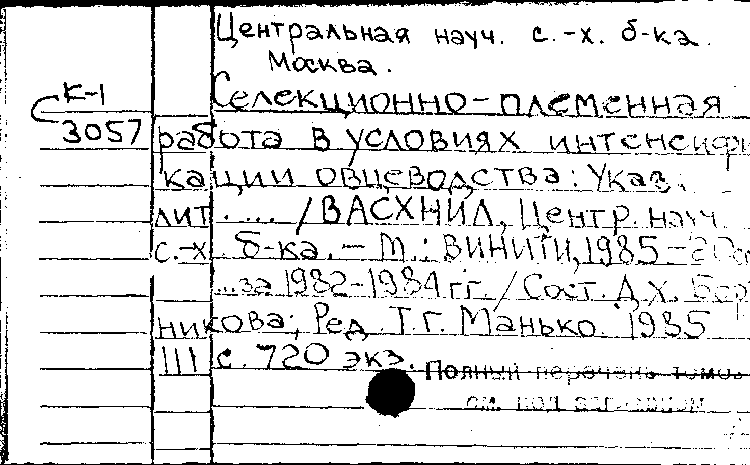 Центральная науч. с.-х. б-ка.
Москва.
К-1
Селекционно-племенная
3057 работа в условиях интенсифи
кации овцеводства: Указ.
лит. ... / ВАСХНИЛ, Центр. науч.
с.-х. б-ка. - М.: ВИНИТИ, 1985 -
...за 1982-1984 гг. / Сост. Д.Х.
никова; Ред. Т.Г. Манько. 1985
111 с. 720 экз.
Полный перечень томов
см. под заглавием